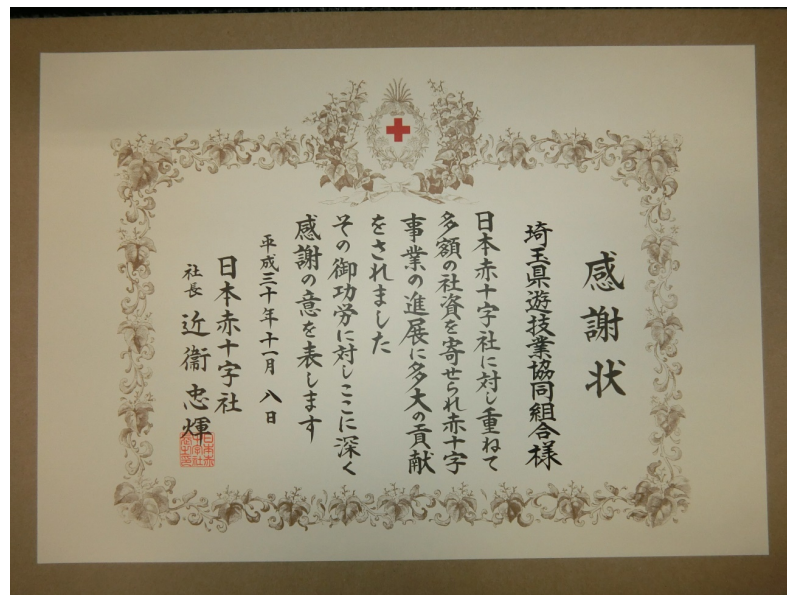 感謝状
埼玉県遊技業協同組合様
日本赤十字社に対し重ねて
多額の社資を寄せられ赤十字
事業の進展に多大の貢献
をされました
その御功労に対しここに深く
感謝の意を表します
平成三十年十一月 八日
日本赤十字社
社長 近衞忠煇